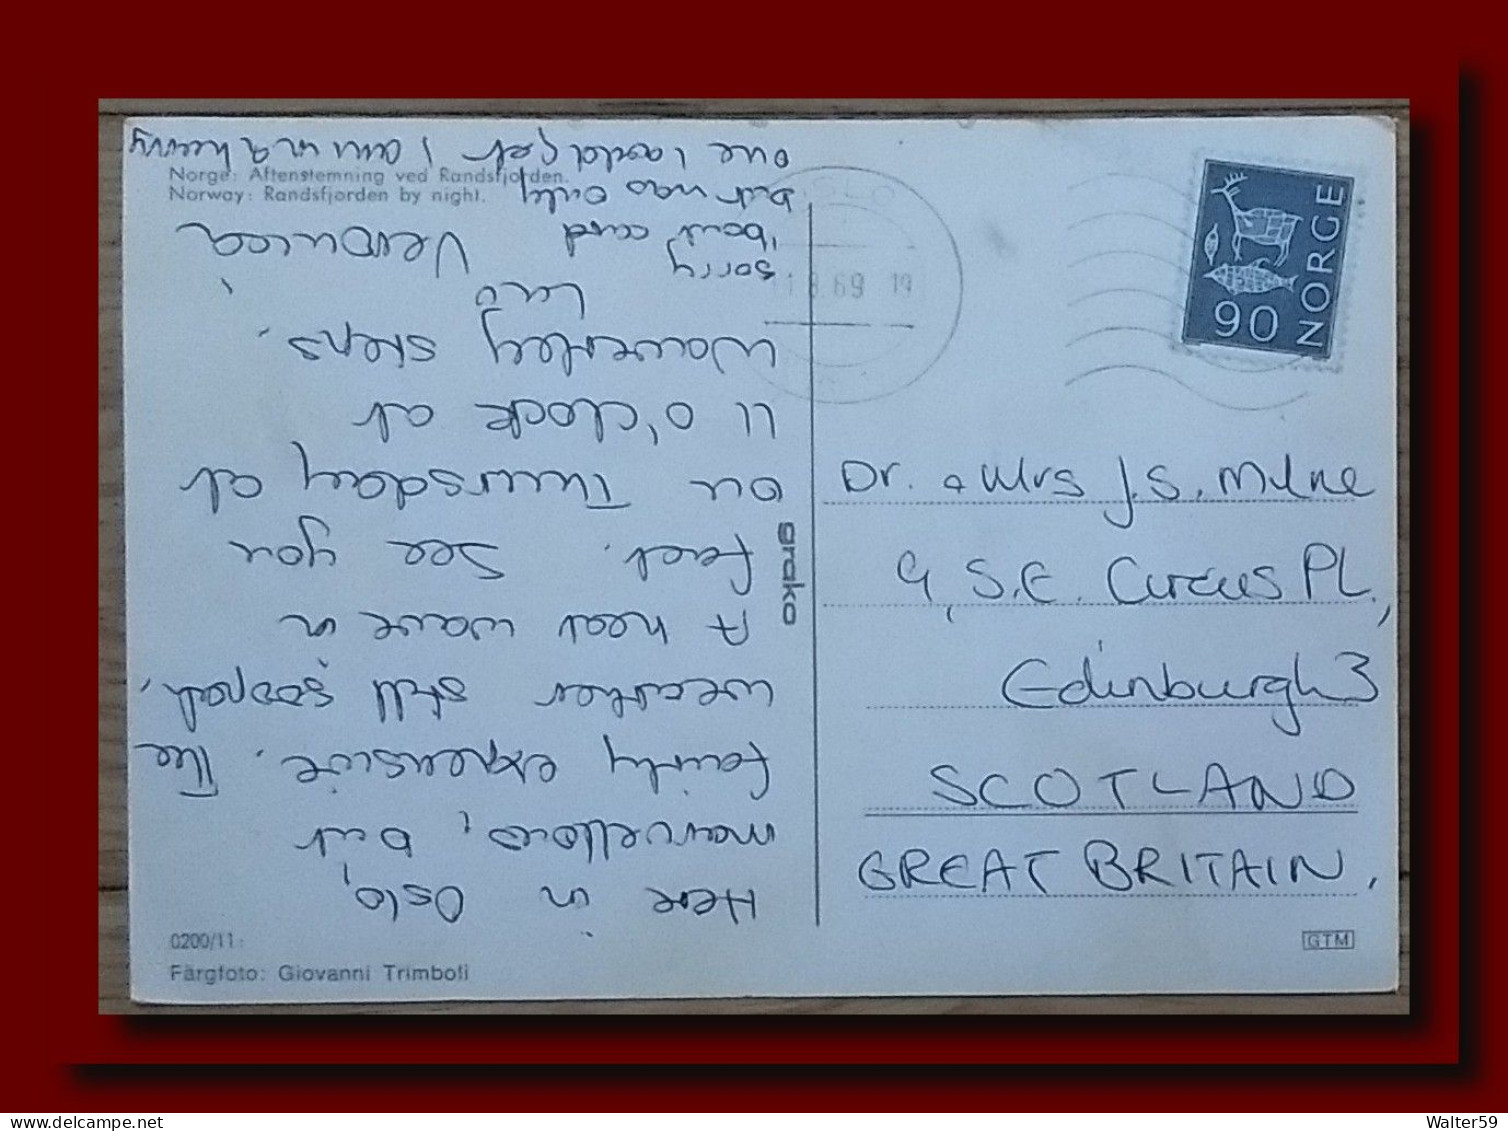 Norge: Aftenstemning ved Randsfjorden.
Norway: Randsfjorden by night.
Here in Oslo,
marvellous, but
fairly expensive. The
weather still good,
A heat wave in
fact. See you
on Thursday at
11 o'clock at
Waverley steps.
Love
Veronica
sorry
'bout card
but was only
one I could get I am in a hurry
grako
OSLO
11 8 69 19
NORGE
90
Dr. & Mrs J. S. Milne
9, S.E. Circus PL.,
Edinburgh 3
SCOTLAND
GREAT BRITAIN.
0200/11
Färgfoto: Giovanni Trimboli
GTM
Walter59